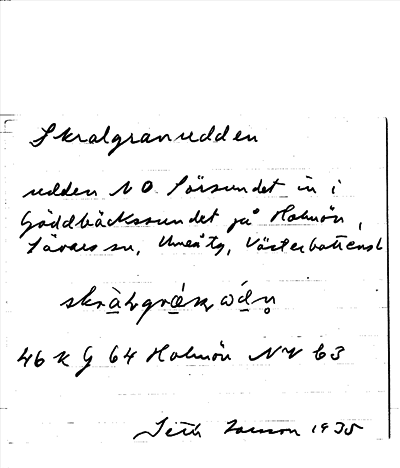 Skralgranudden
udden NO Sörsundet in i
Gäddbäckssundet på Holmön,
Sävars sn, Umeå tg, Västerbottensl
46 K G 64 Holmön NV 63
Seth 1935